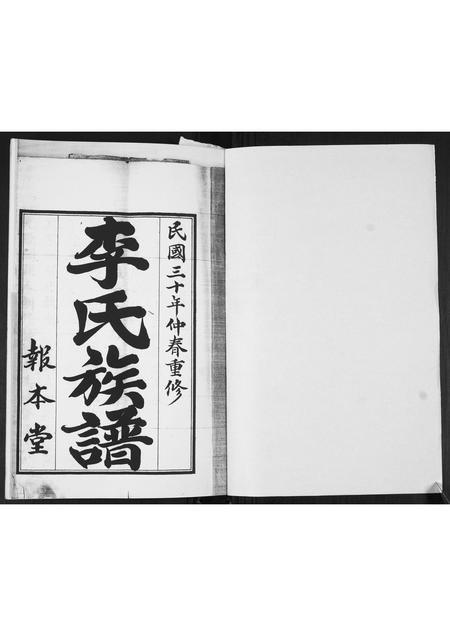 民國三十年仲春重修
李氏族譜
報本堂